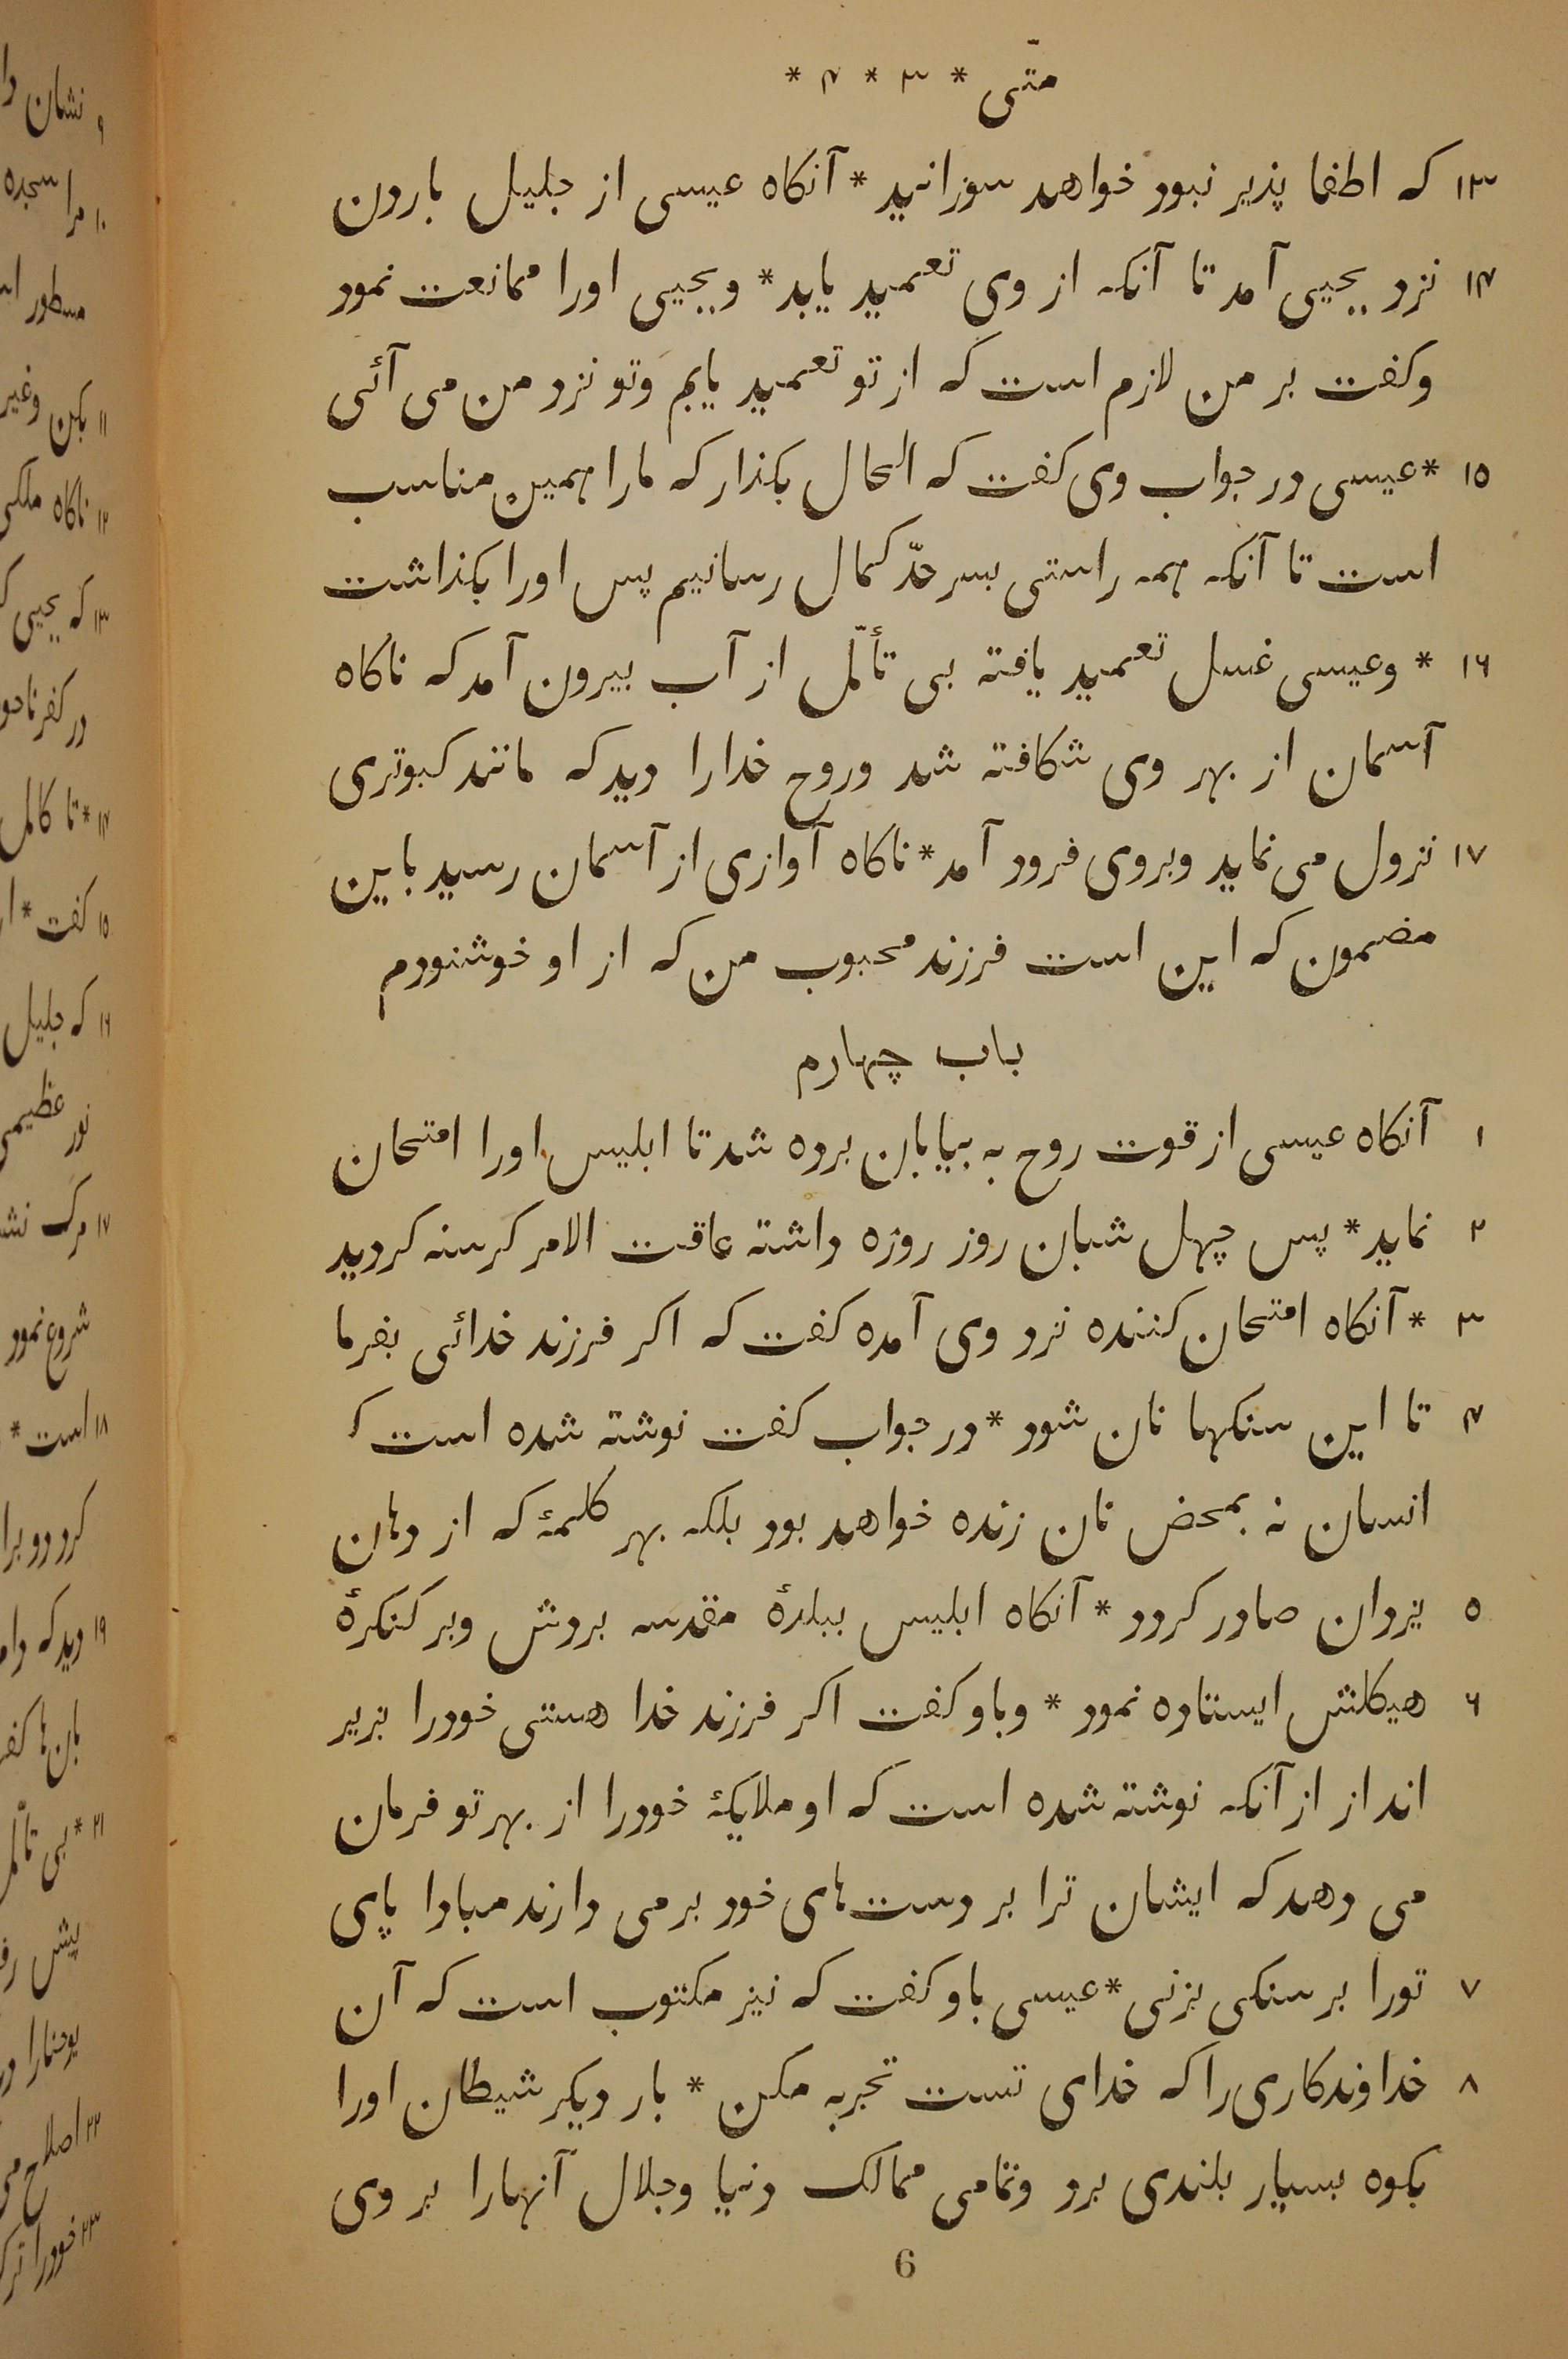 متّی * ۳ * ۴ *
۱۳ که اطفا پذیر نبود خواهد سوزانید * آنکاه عیسی از جلیل باردن
۱۴ نزد یحیی آمد تا آنکه از وی تعمید یابد * ویحیی اورا ممانعت نمود
وکفت بر من لازم است که از تو تعمید یابم وتو نزد من می آئی
۱۵ * عیسی در جواب وی کفت که الحال بکذار که مارا همین مناسب
است تا آنکه همه راستی بسر حدّ کمال رسانیم پس اورا بکذاشت
۱۶ * وعیسی غسل تعمید یافته بی تأمّل از آب بیرون آمد که ناکاه
آسمان از بهر وی شکافته شد وروح خدارا دید که مانند کبوتری
۱۷ نزول می نماید وبروی فرود آمد * ناکاه آوازی از آسمان رسید باین
مضمون که این است فرزند محبوب من که از او خوشنودم
باب چهارم
۱ آنکاه عیسی از قوت روح به بیابان برده شد تا ابلیس اورا امتحان
۲ نماید * پس چهل شبان روز روزه داشته عاقت الامر کرسنه کردید
۳ * آنکاه امتحان کننده نزد وی آمده کفت که اکر فرزند خدائی بفرما
۴ تا این سنکها نان شود * در جواب کفت نوشته شده است که
انسان نه بمحض نان زنده خواهد بود بلکه بهر کلمهٔ که از دهان
۵ یزدان صادر کردد * آنکاه ابلیس ببلدهٔ مقدسه بردش وبر کنکرهٔ
۶ هیکلش ایستاده نمود * وباو کفت اکر فرزند خدا هستی خودرا بزیر
انداز از آنکه نوشته شده است که او ملایکهٔ خودرا از بهر تو فرمان
می دهد که ایشان ترا بر دست های خود بر می دارند مبادا پای
۷ تورا بر سنکی بزنی * عیسی باو کفت که نیز مکتوب است که آن
۸ خداوندکاری را که خدای تست تجربه مکن * بار دیکر شیطان اورا
بکوه بسیار بلندی برد وتمامی ممالک دنیا وجلال آنهارا بر وی
6